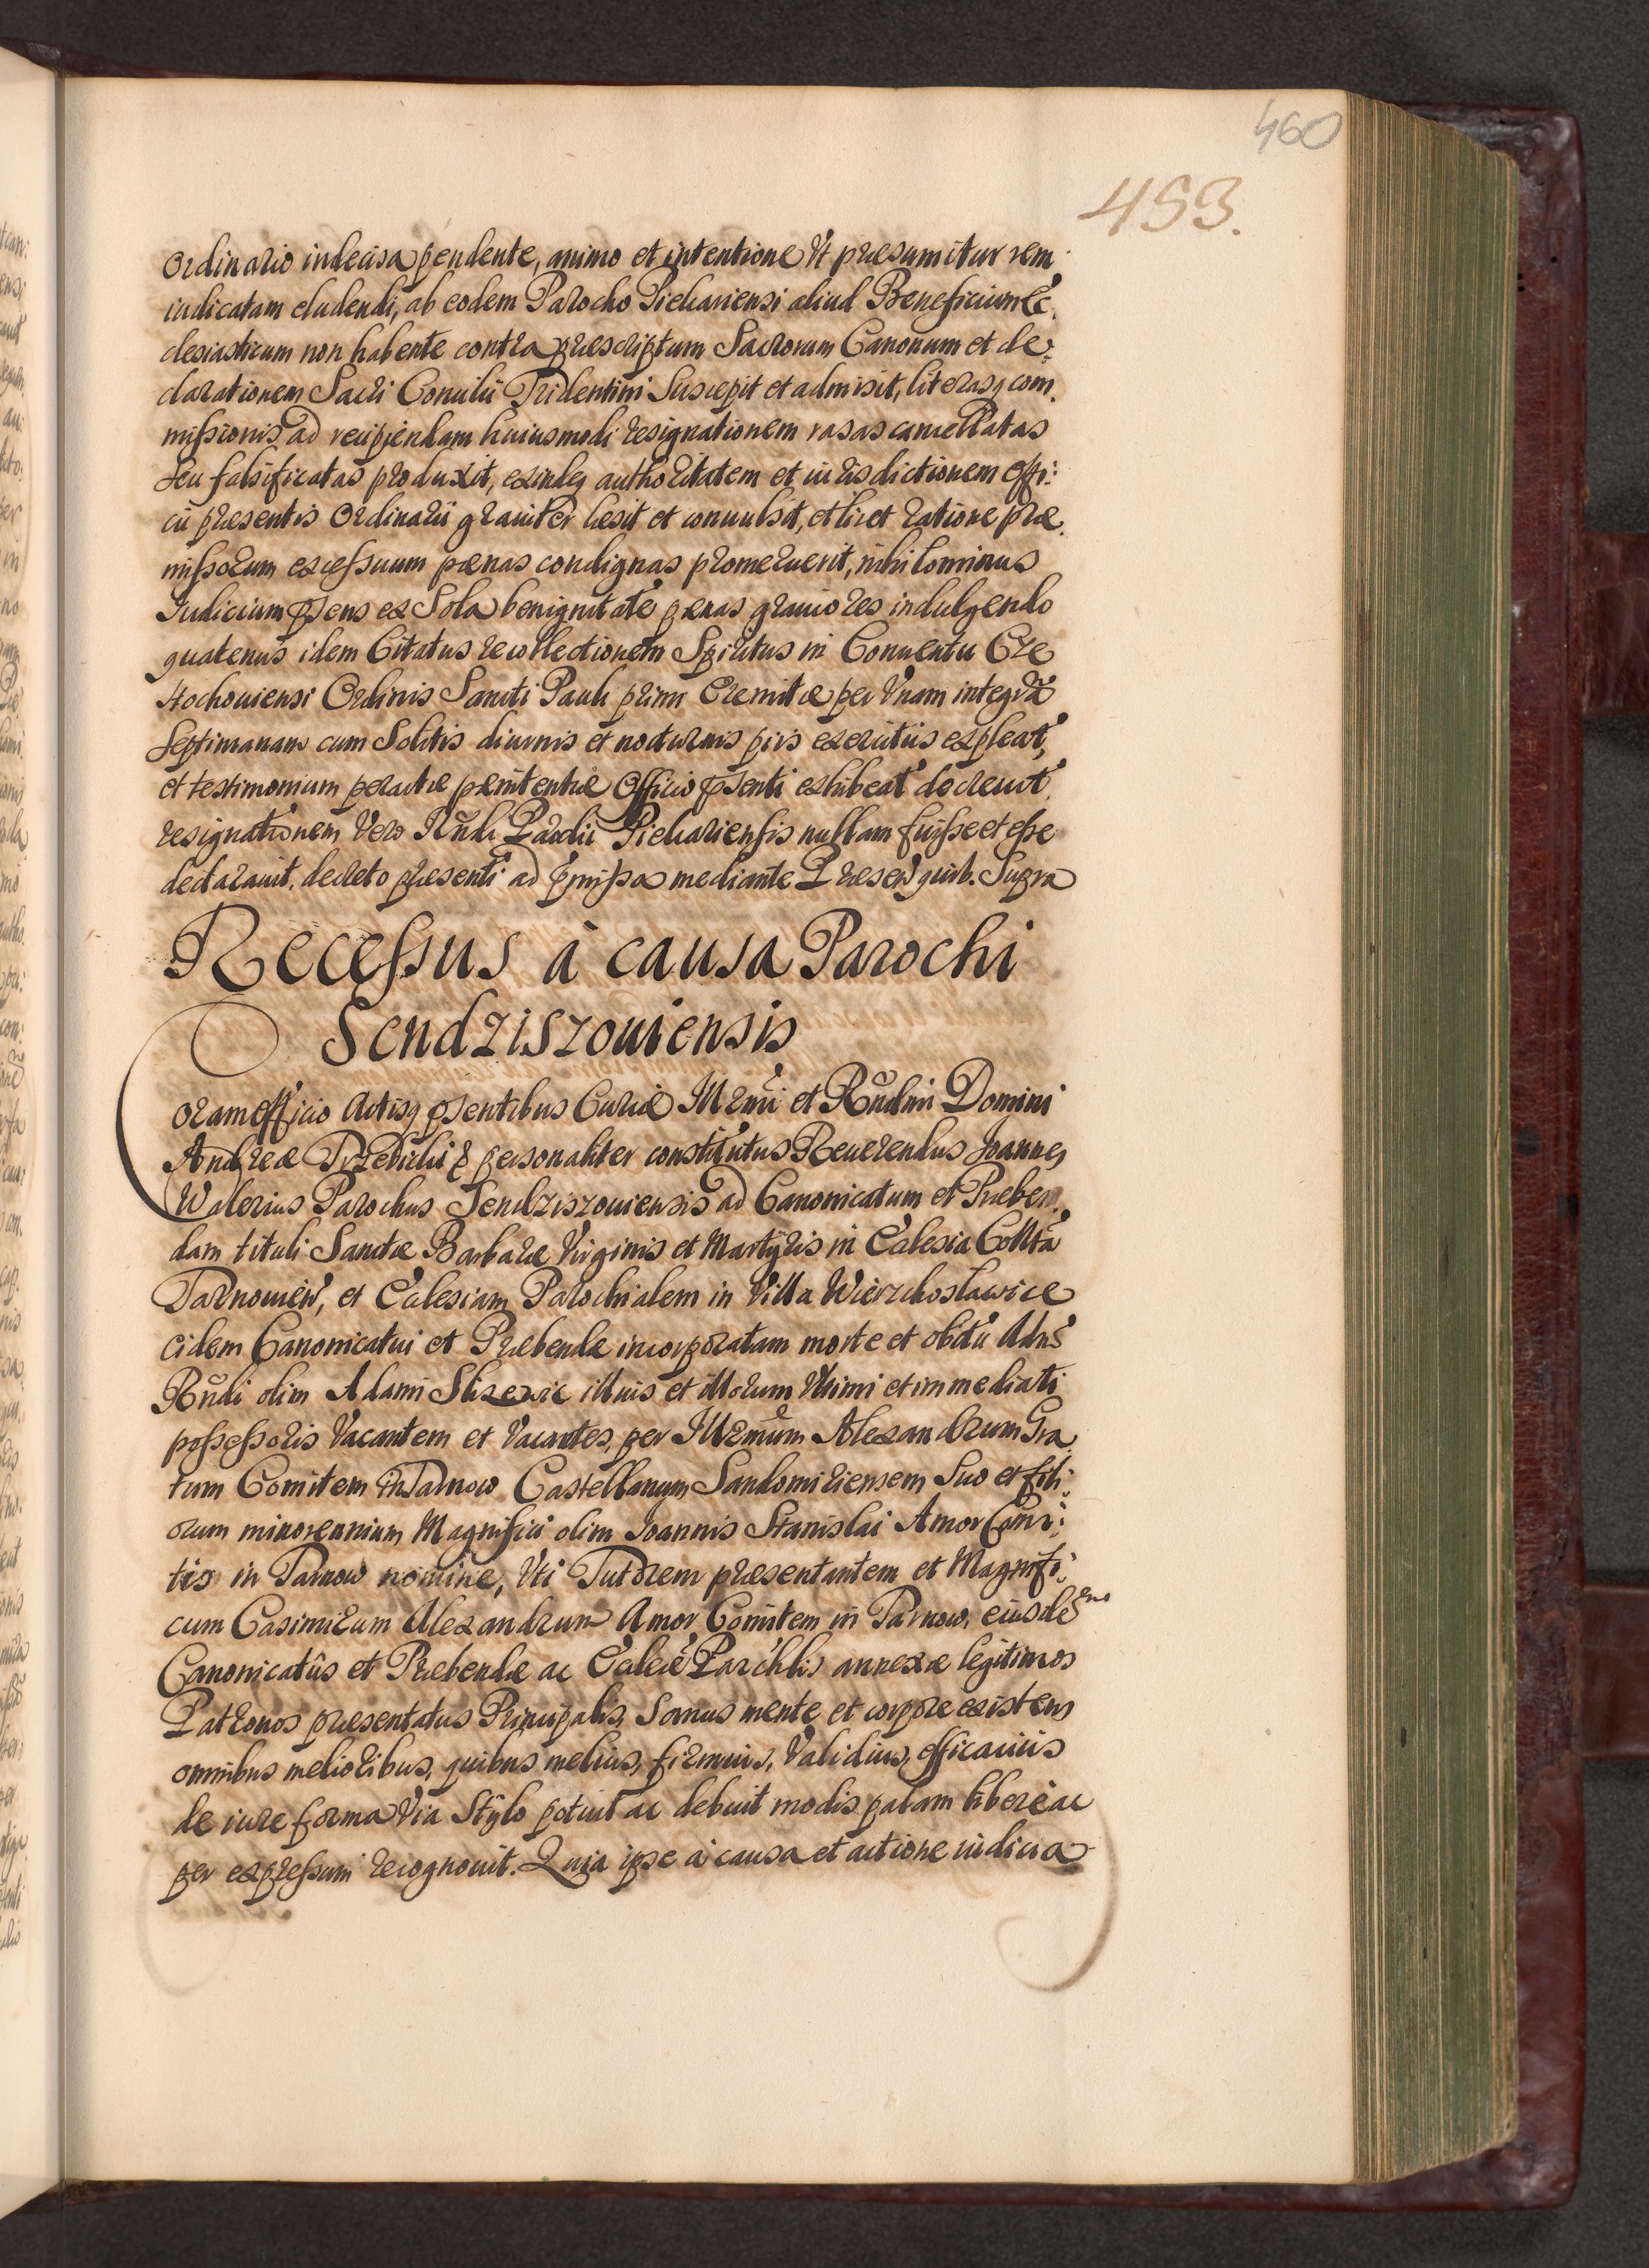 460
453.
Ordinario indecisa pendente, animo et intentione Vt præsumitur rem
iudicatam eludendi, ab eodem Parocho Piekariensi aliud Beneficium Ec:
clesiasticum non habente contra præscriptum Sacrorum Canonum et de:
clarationem Sacri Concilii Tridentini Suscepit et admisit, literasq com:
missionis ad recipiendam huiusmodi resignationem rasas cancellatas
seu falsificatas produxit, exindeq authoritatem et iurisdictionem offi:
cii præsentis Ordinarii grauiter læsit et conuulsit, et licet ratione præ:
missorum excessuum pœnas condignas promeruerit, nihilominus
Iudicium psens ex Sola benignitate pœnas grauiores indulgendo
quatenus idem Citatus recollectionem Spiritus in Conuentu Cze
stochouiensi Ordinis Sancti Pauli primi Eremitæ per Vnam integrã
Septimanam cum Solitis diurnis et nocturnis piis exercitiis expleat,
et testimonium peractæ pænitentiæ Officio psenti exhibeat decreuit,
resignationem Vero Rndi Parochi Piekariensis nullam fuisse et esse
declarauit, decreto præsenti ad pmissa mediante Præsen quib. Supra
Recessus à causa Parochi
Sendziszouiensis
Coram officio Actisq psentibus Curiæ Illrmi et Rndmi Domini
Andreæ Trzebicki & personaliter constitutus Reuerendus Joannes
Walerius Parochus Sendziszouiensis ad Canonicatum et Præben
dam tituli Sanctæ Barbaræ Virginis et Martyris in Ecclesia Collta
Tarnouien, et Ecclesiam Parochialem in Villa Wierzchosławice
eidem Canonicatui et Præbendæ incorporatam morte et obitu Adm
Rndi olim Adami Slizewic illius et illorum Vltimi et immediati
possessoris Vacantem et Vacantes, per Illrmum Alexandrum Gra
tum Comitem in Tarnow Castellanum Sandomiriensem Suo et fili:
orum minorennium Magnifici olim Joannis Stanislai Amor Comi:
tis in Tarnow nomine, Vti Tutorem præsentantem et Magnifi:
cum Casimirum Alexandrum Amor Comitem in Tarnow, eiusdem
Canonicatûs et Præbendæ ac Ecclæ Parchlis annexæ legitimos
Patronos præsentatus Principalis, Sanus mente et corpore existens
omnibus melioribus, quibus melius, firmius, Validius, efficaciùs
de iure forma Via Stylo potuit ac debuit modis, palam liberè ac
per expressum recognouit. Quia ipse à causa et actione iudicia